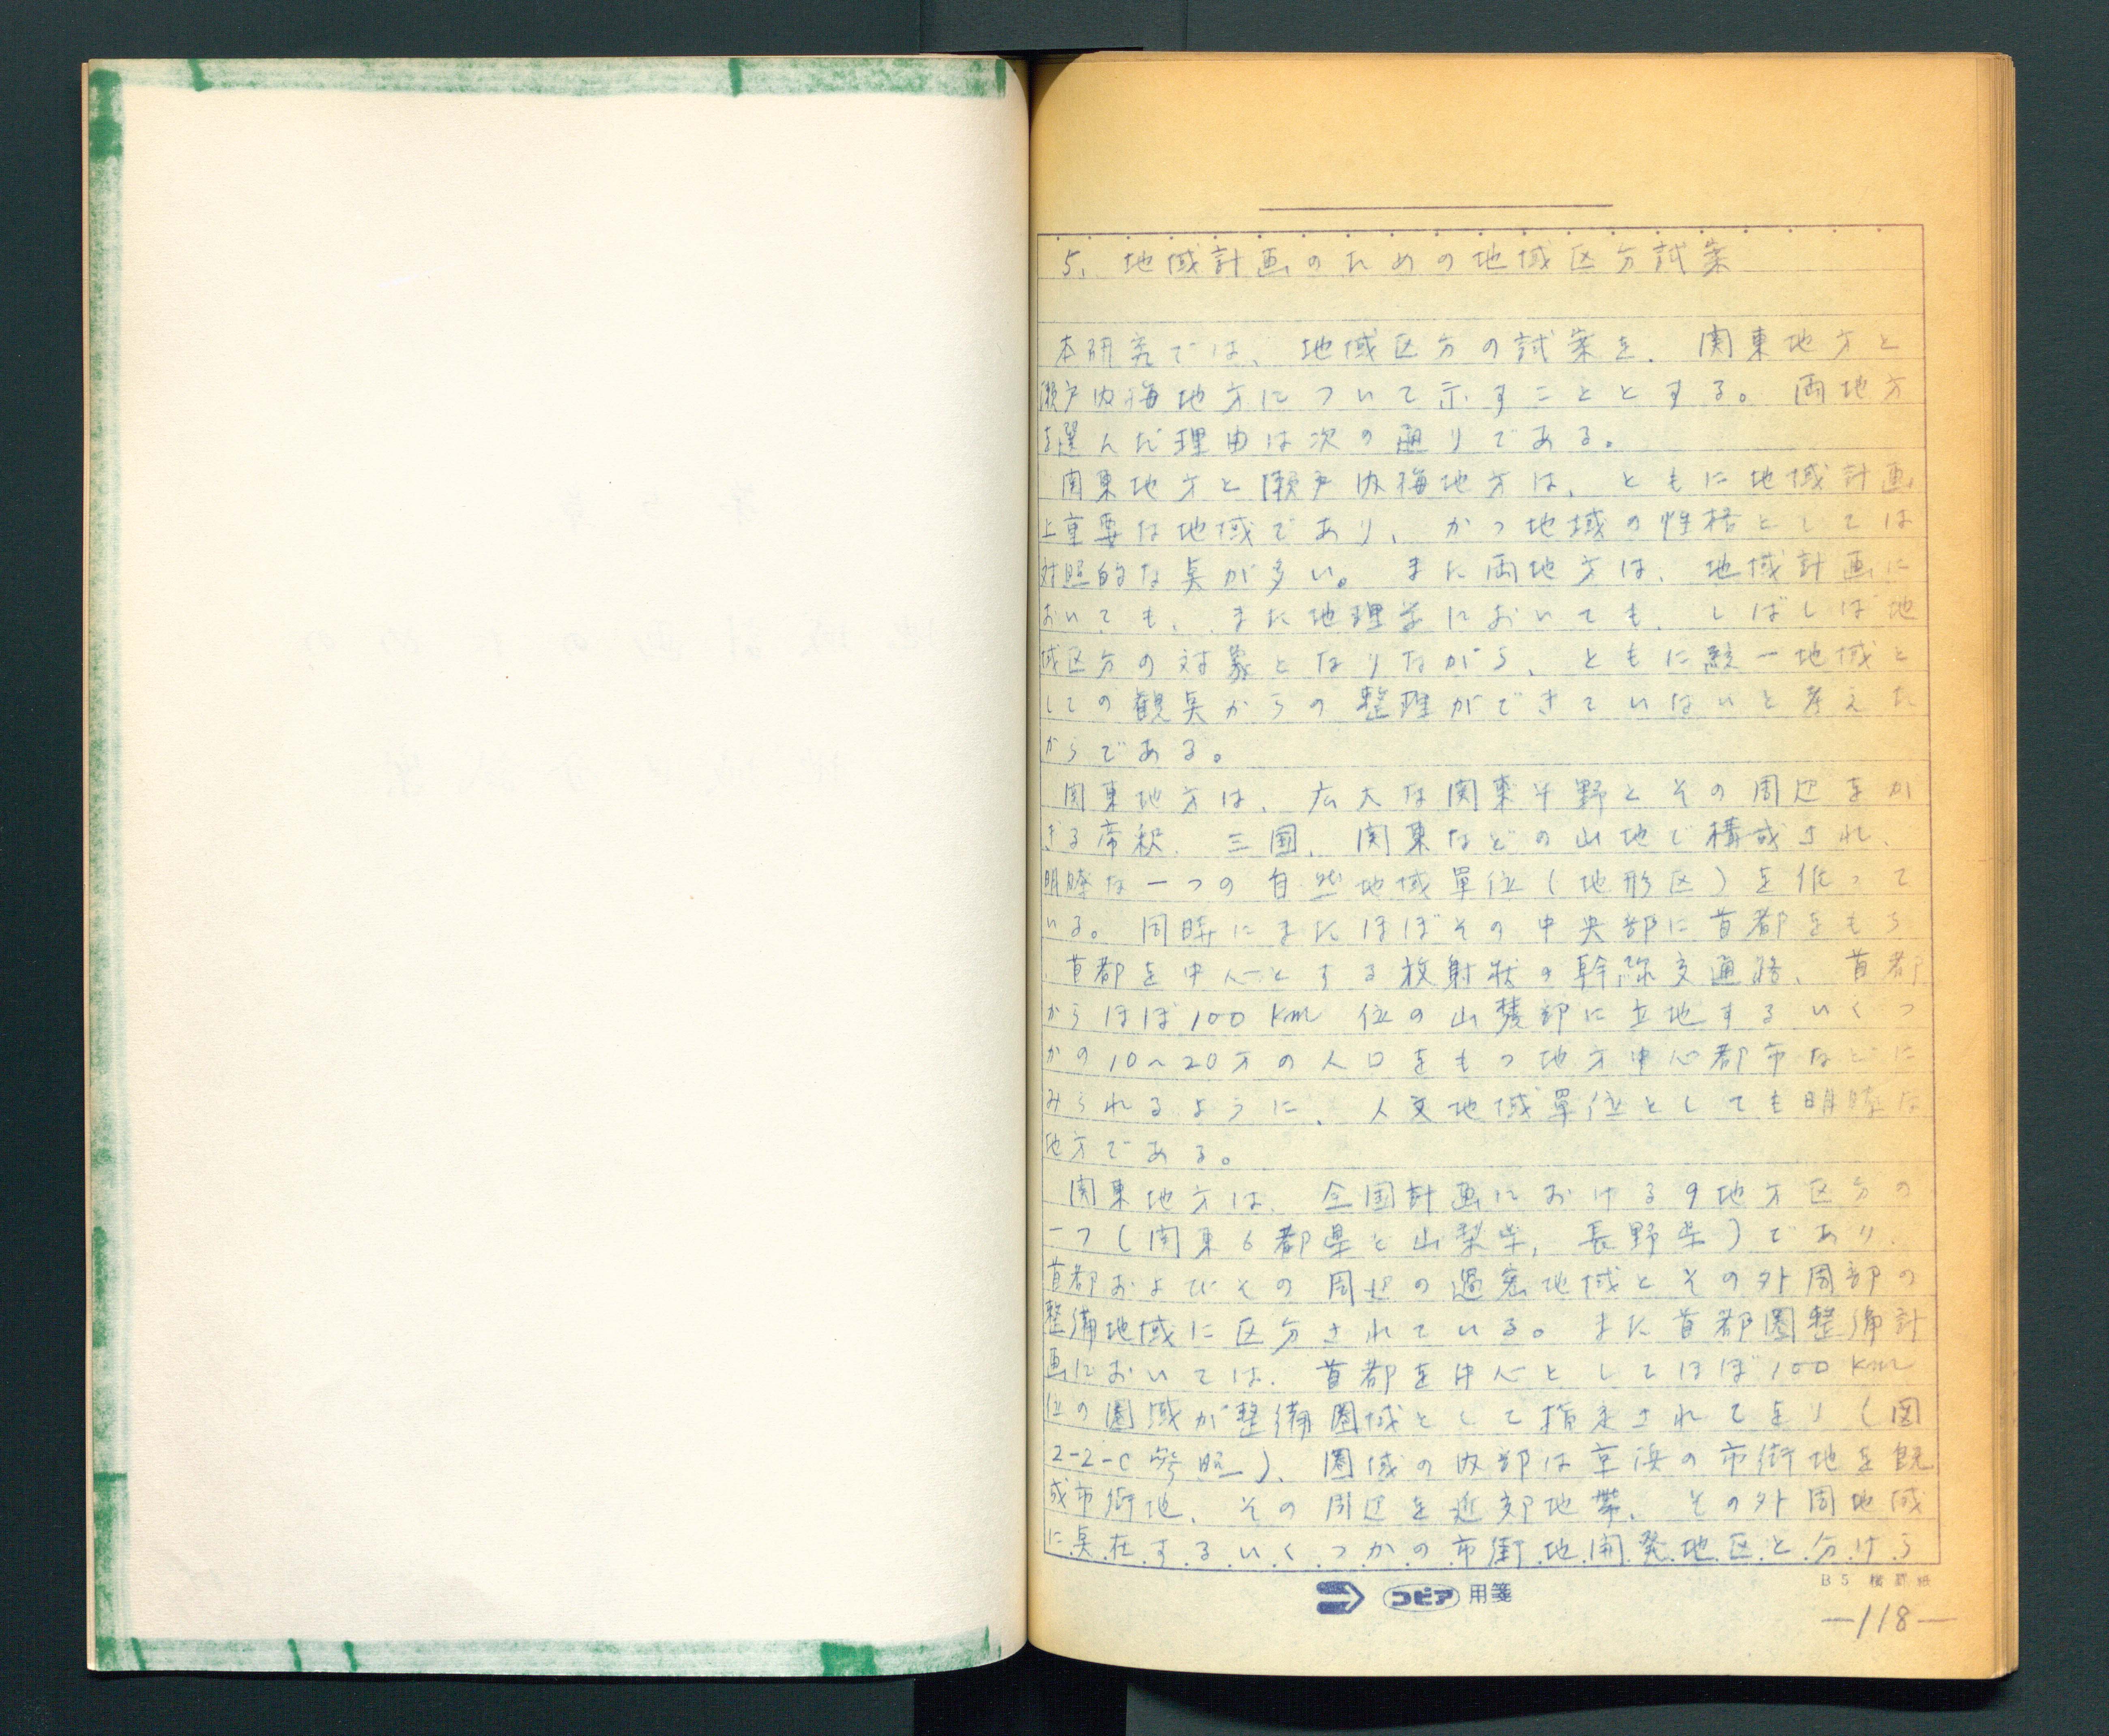 5. 地域計画のための地域区分試案
本研究では、地域区分の試案を、関東地方と
瀬戸内海地方について示すこととする。両地方
を選んだ理由は次の通りである。
関東地方と瀬戸内海地方は、ともに地域計画
上重要な地域であり、かつ地域の性格としては
対照的な点が多い。また両地方は、地域計画に
おいても、また地理学においても、しばしば地
域区分の対象となりながら、ともに統一地域と
しての観点からの整理ができていないと考えた
からである。
関東地方は、広大な関東平野とその周辺をか
ぎる帝釈、三国、関東などの山地で構成され、
明瞭な一つの自然地域単位(地形区)を作って
いる。同時にまたほぼその中央部に首都をもち
、首都を中心とする放射状の幹線交通路、首都
からほぼ100km位の山麓部に立地するいくつ
かの10~20万の人口をもつ地方中心都市などに
みられるように、人文地域単位としても明瞭な
地方である。
関東地方は、全国計画における9地方区分の
一つ(関東6都県と山梨県,長野県)であり、
首都およびその周辺の過密地域とその外周部の
整備地域に区分されている。また首都圏整備計
画においては、首都を中心としてほぼ100km
位の圏域が整備圏域として指定されてをり(図
2-2-C参照)、圏域の内部は京浜の市街地を既
成市街地、その周辺を近郊地帯、その外周地域
に点在するいくつかの市街地開発地区と分けら
コピア 用箋
B5 横罫紙
—118—